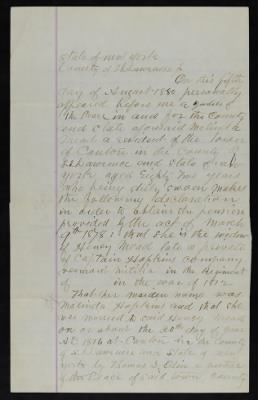 State of New York
County of St Lawrence
On this fifth
day of August 1880 personally
appeared before me a Justice of
the Peace in and for the County
and State aforesaid Melinda
Mead a resident of the Town
of Canton in the County of
St Lawrence and State of New
York aged Eighty Two years
who being duly sworn makes
the following declaration
in order to obtain the pension
provided by the act of March
9th 1878: that she is the widow
of Henry Mead late a private
Captain Hopkins Company
Vermont Militia in the Regiment
of in the war of 1812
That her maiden name was
Malinda Hopkins and that she
was married to said Henry Mead
on or about the 20th day of
AD 1816 at Canton in the County
of St Lawrence and State of New
York by Thomas D. Olin a Justice
of the Peace of said Town County